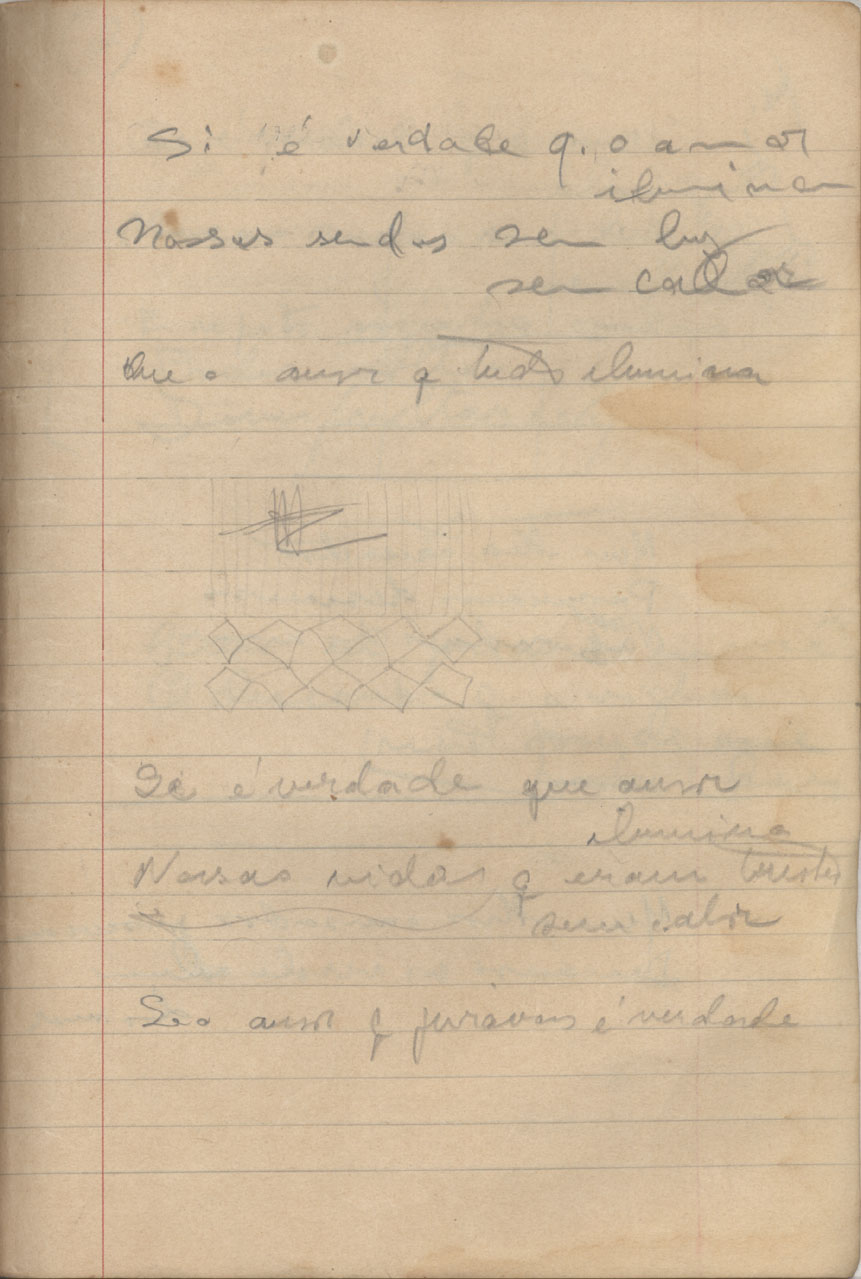 Si é verdade q. o amor
ilumina
Nossas sendas sem luz
sem calor
Que o amor q tudo ilumina
Se é verdade que amor
ilumina
Nossas vidas q eram tristes
sem calor
Se o amor q juravas é verdade